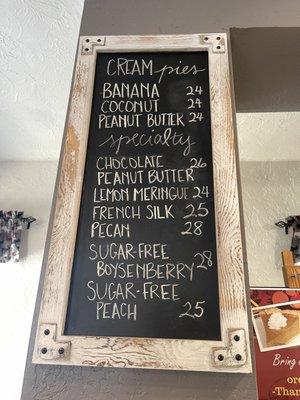 CREAM pies
BANANA 24
COCONUT 24
PEANUT BUTTER 24
specialty
CHOCOLATE 26
PEANUT BUTTER
LEMON MERINGUE 24
FRENCH SILK 25
PECAN 28
SUGAR-FREE
BOYSENBERRY 28
SUGAR-FREE
PEACH 25
Bring